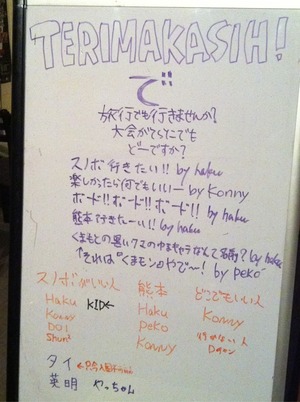 TERIMAKASIH!
で
旅行でも行きませんか?
大会がてらでも
どーですか?
スノボ行きたい!! by haku
楽しかったら何でもいいー by Konny
ボード!!ボード!!ボード!! by haku
熊本行きたーい!! by haku
くまもとの黒いクマのゆるキャラなんて名前? by haku
それは"くまモン"やでー! by peko
スノボがいい人 熊本 どこでもいい人
Haku KID← Haku Konny
Konny peko
DOI Konny
Shun
タイ
英明 やっちゃん